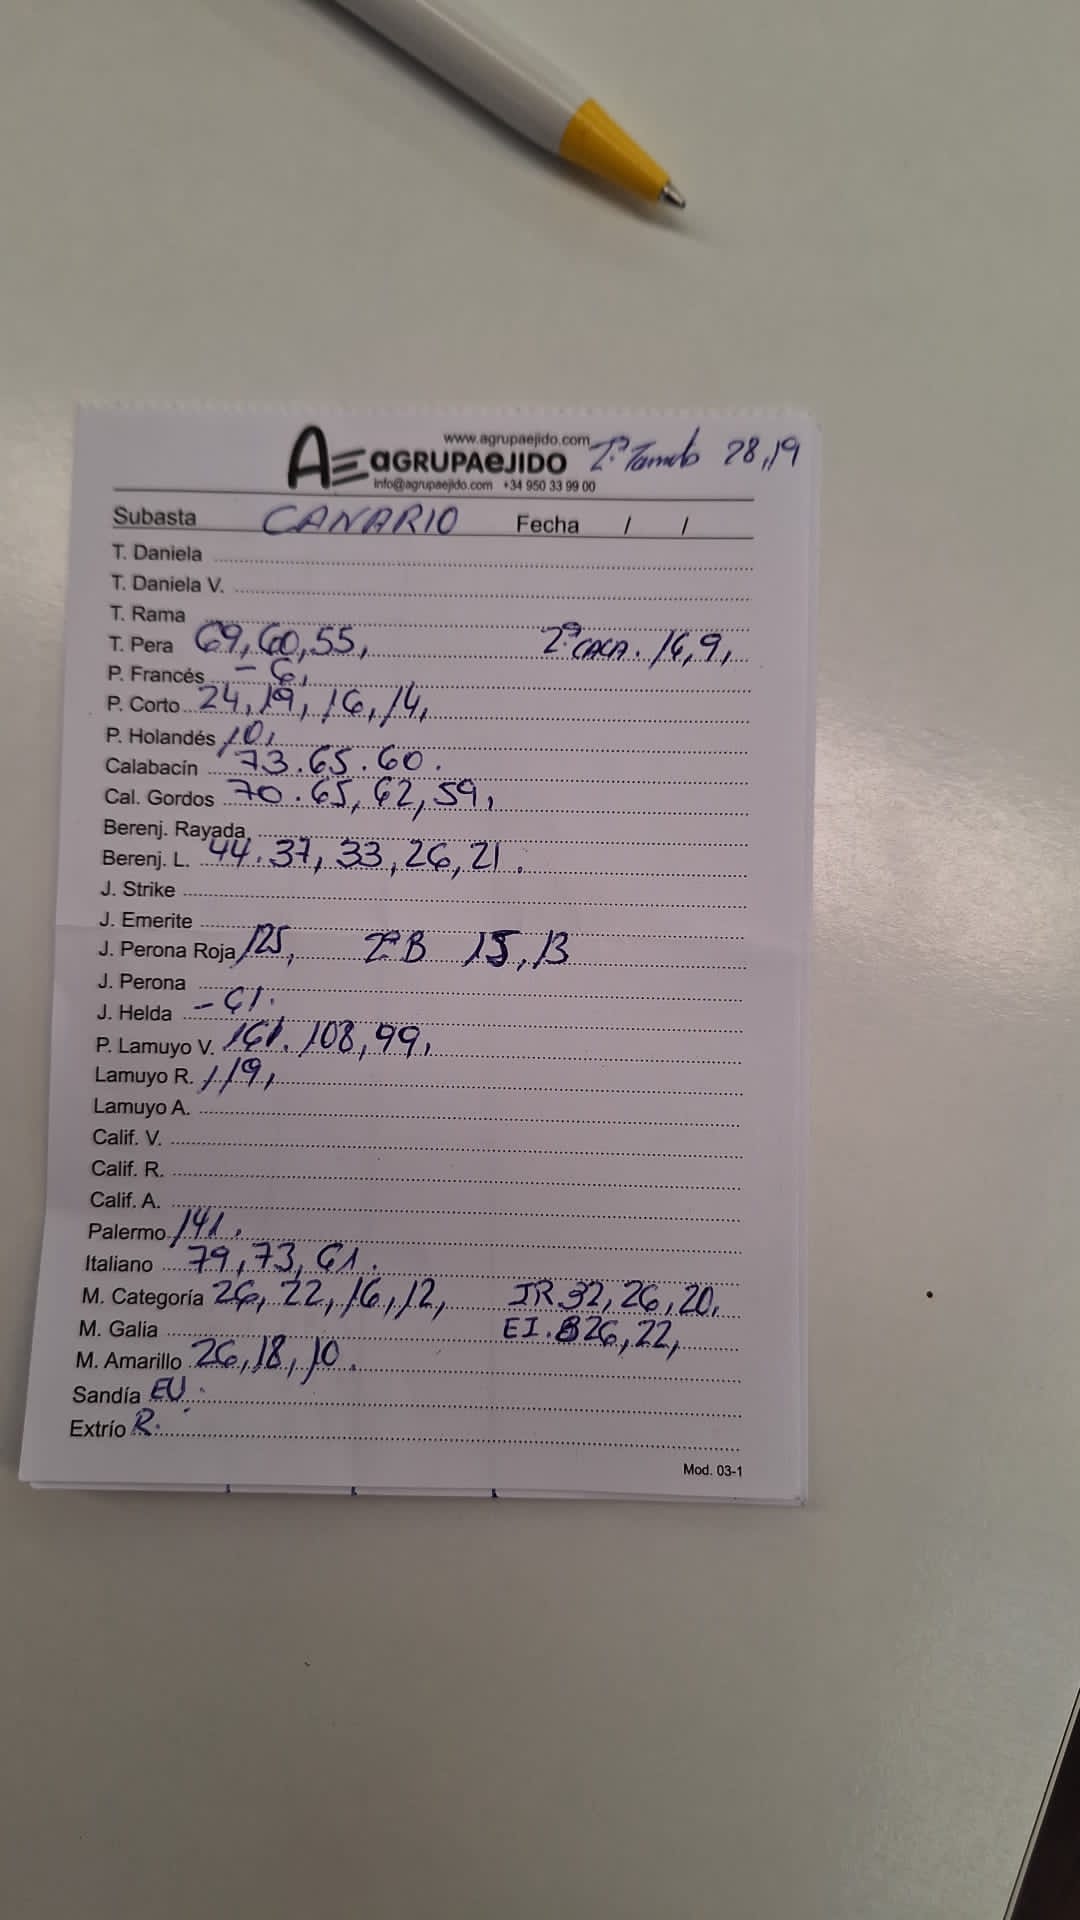 www.agrupaejido.com
AE aGRUPAeJIDO 2ª Tamaño 28,19
info@agrupaejido.com +34 950 33 99 00
Subasta CANARIO Fecha / /
T. Daniela
T. Daniela V.
T. Rama
T. Pera 69,60,55, 2ª CACA. 16,9,
P. Francés - 6,
P. Corto 24,19,16,14,
P. Holandés 10,
Calabacín 73.65.60.
Cal. Gordos 70.65,62,59,
Berenj. Rayada
Berenj. L. 44.37,33,26,21.
J. Strike
J. Emerite
J. Perona Roja 125, 2ª B 15,13
J. Perona
J. Helda - 61.
P. Lamuyo V. 161.108,99,
Lamuyo R. 119,
Lamuyo A.
Calif. V.
Calif. R.
Calif. A.
Palermo 141.
Italiano 79,73,61.
M. Categoría 26,22,16,12, JR 32,26,20,
M. Galia EI. 26,22,
M. Amarillo 26,18,10.
Sandía EU.
Extrío R.
Mod. 03-1